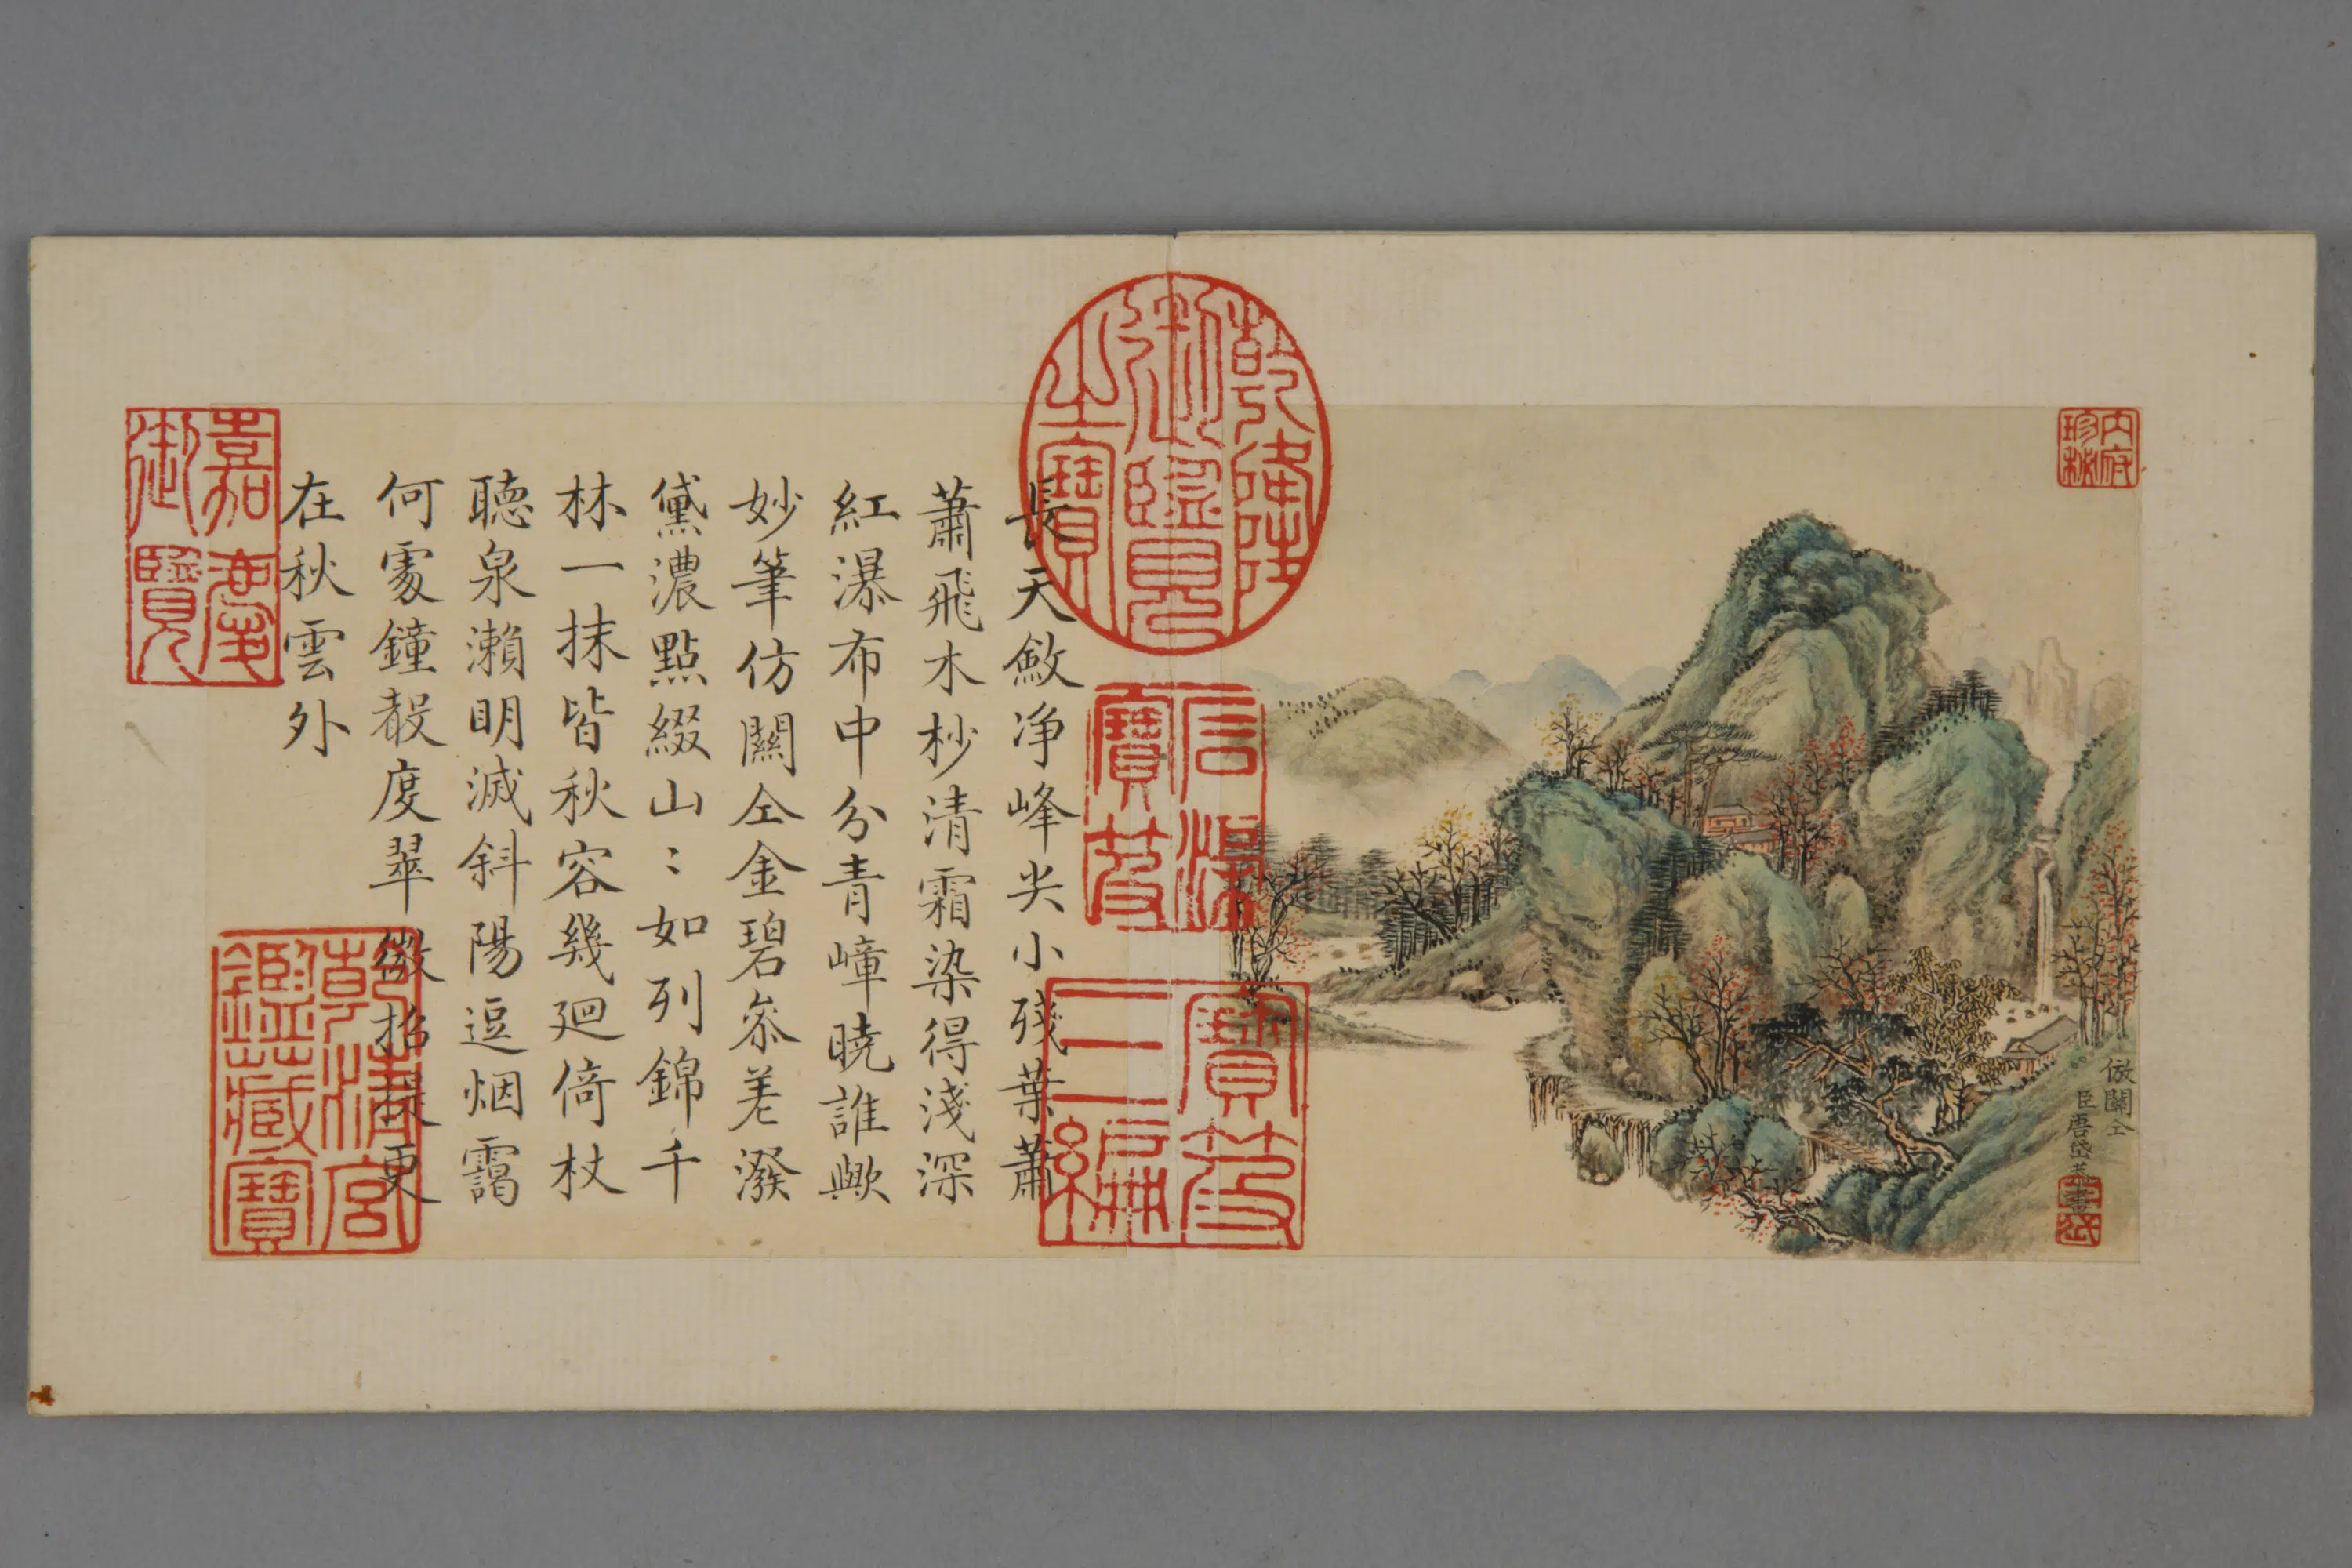 倣關仝
臣唐岱恭畫
內府珍秘
乾隆御覽之寶
石渠寶笈
寶笈三編
長天斂净峰尖小殘葉蕭
蕭飛木杪清霜染得淺深
紅瀑布中分青嶂曉誰歟
妙筆仿關仝金碧叅差潑
黛濃點綴山〻如列錦千
林一抹皆秋容幾廻倚杖
聽泉瀨明滅斜陽逗烟靄
何處鐘聲度翠微招提更
在秋雲外
嘉慶御覽
乾清宮鑑藏寶